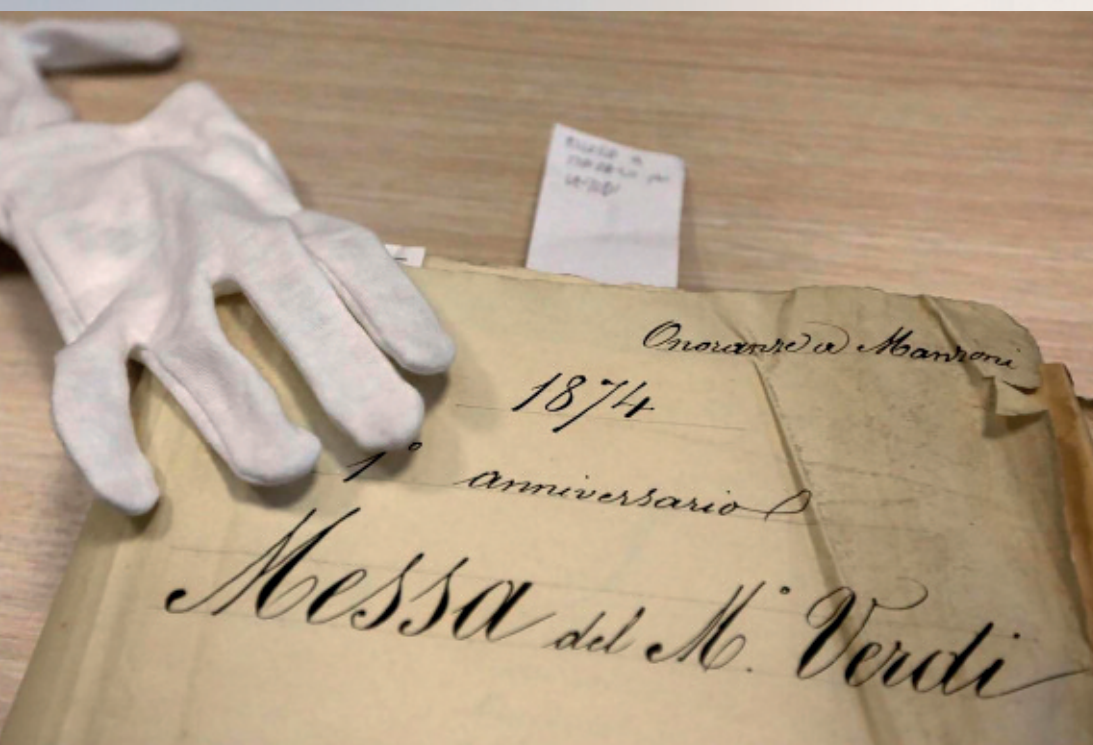 Onoranze a Manzoni
1874
1° anniversario
Messa del M.° Verdi